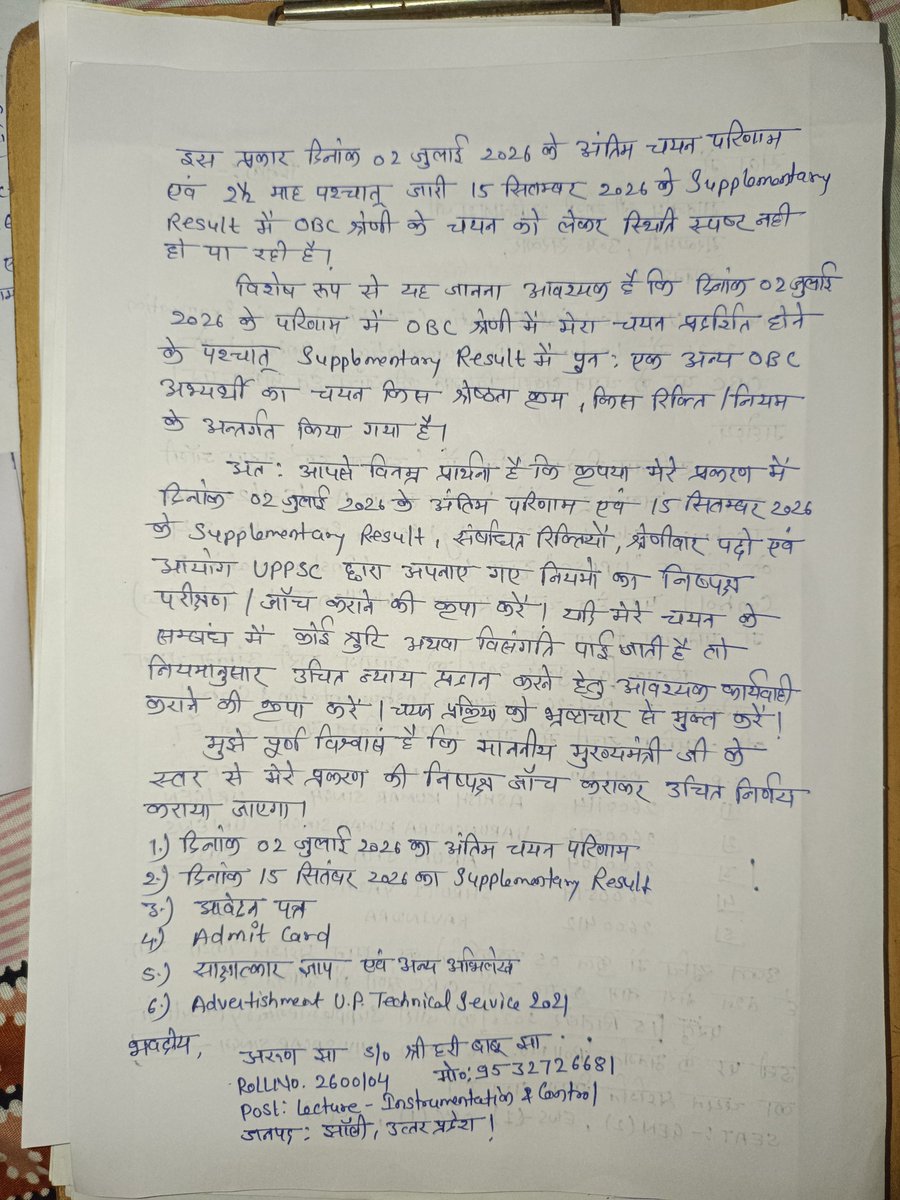 इस प्रकार दिनांक 02 जुलाई 2026 के अंतिम चयन परिणाम
एवं 2½ माह पश्चात् जारी 15 सितम्बर 2026 के Supplementary
Result में OBC श्रेणी के चयन को लेकर स्थिति स्पष्ट नही
हो पा रही है।
विशेष रूप से यह जानना आवश्यक है कि दिनांक 02 जुलाई
2026 के परिणाम में OBC श्रेणी में मेरा चयन प्रदर्शित होने
के पश्चात् Supplementary Result में पुन: एक अन्य OBC
अभ्यर्थी का चयन किस श्रेष्ठता क्रम, किस रिक्ति / नियम
के अन्तर्गत किया गया है।
अत: आपसे विनम्र प्रार्थना है कि कृपया मेरे प्रकरण में
दिनांक 02 जुलाई 2026 के अंतिम परिणाम एवं 15 सितम्बर 2026
के Supplementary Result, संबंधित रिक्तियों, श्रेणीवार पदो एवं
आयोग UPPSC द्वारा अपनाए गए नियमों का निष्पक्ष
परीक्षण / जाँच कराने की कृपा करें। यदि मेरे चयन के
सम्बंध में कोई त्रुटि अथवा विसंगति पाई जाती है तो
नियमानुसार उचित न्याय प्रदान करने हेतु आवश्यक कार्यवाही
कराने की कृपा करें। चयन प्रक्रिया को भ्रष्टाचार से मुक्त करें!
मुझे पूर्ण विश्वास है कि माननीय मुख्यमंत्री जी के
स्तर से मेरे प्रकरण की निष्पक्ष जाँच कराकर उचित निर्णय
कराया जाएगा।
1.) दिनांक 02 जुलाई 2026 का अंतिम चयन परिणाम
2.) दिनांक 15 सितंबर 2026 का Supplementary Result !
3.) आवेदन पत्र
4.) Admit Card
5.) साक्षात्कार ज्ञाप एवं अन्य अभिलेख
6.) Advertishment U.P. Technical Service 2021
भवदीय,
अरुण झा S/o श्री हरी बाबू झा
RollNo. 2600104 मो०: 9532726681
Post: Lecture - Instrumentation & Control
जनपद : झाँसी, उत्तर प्रदेश!